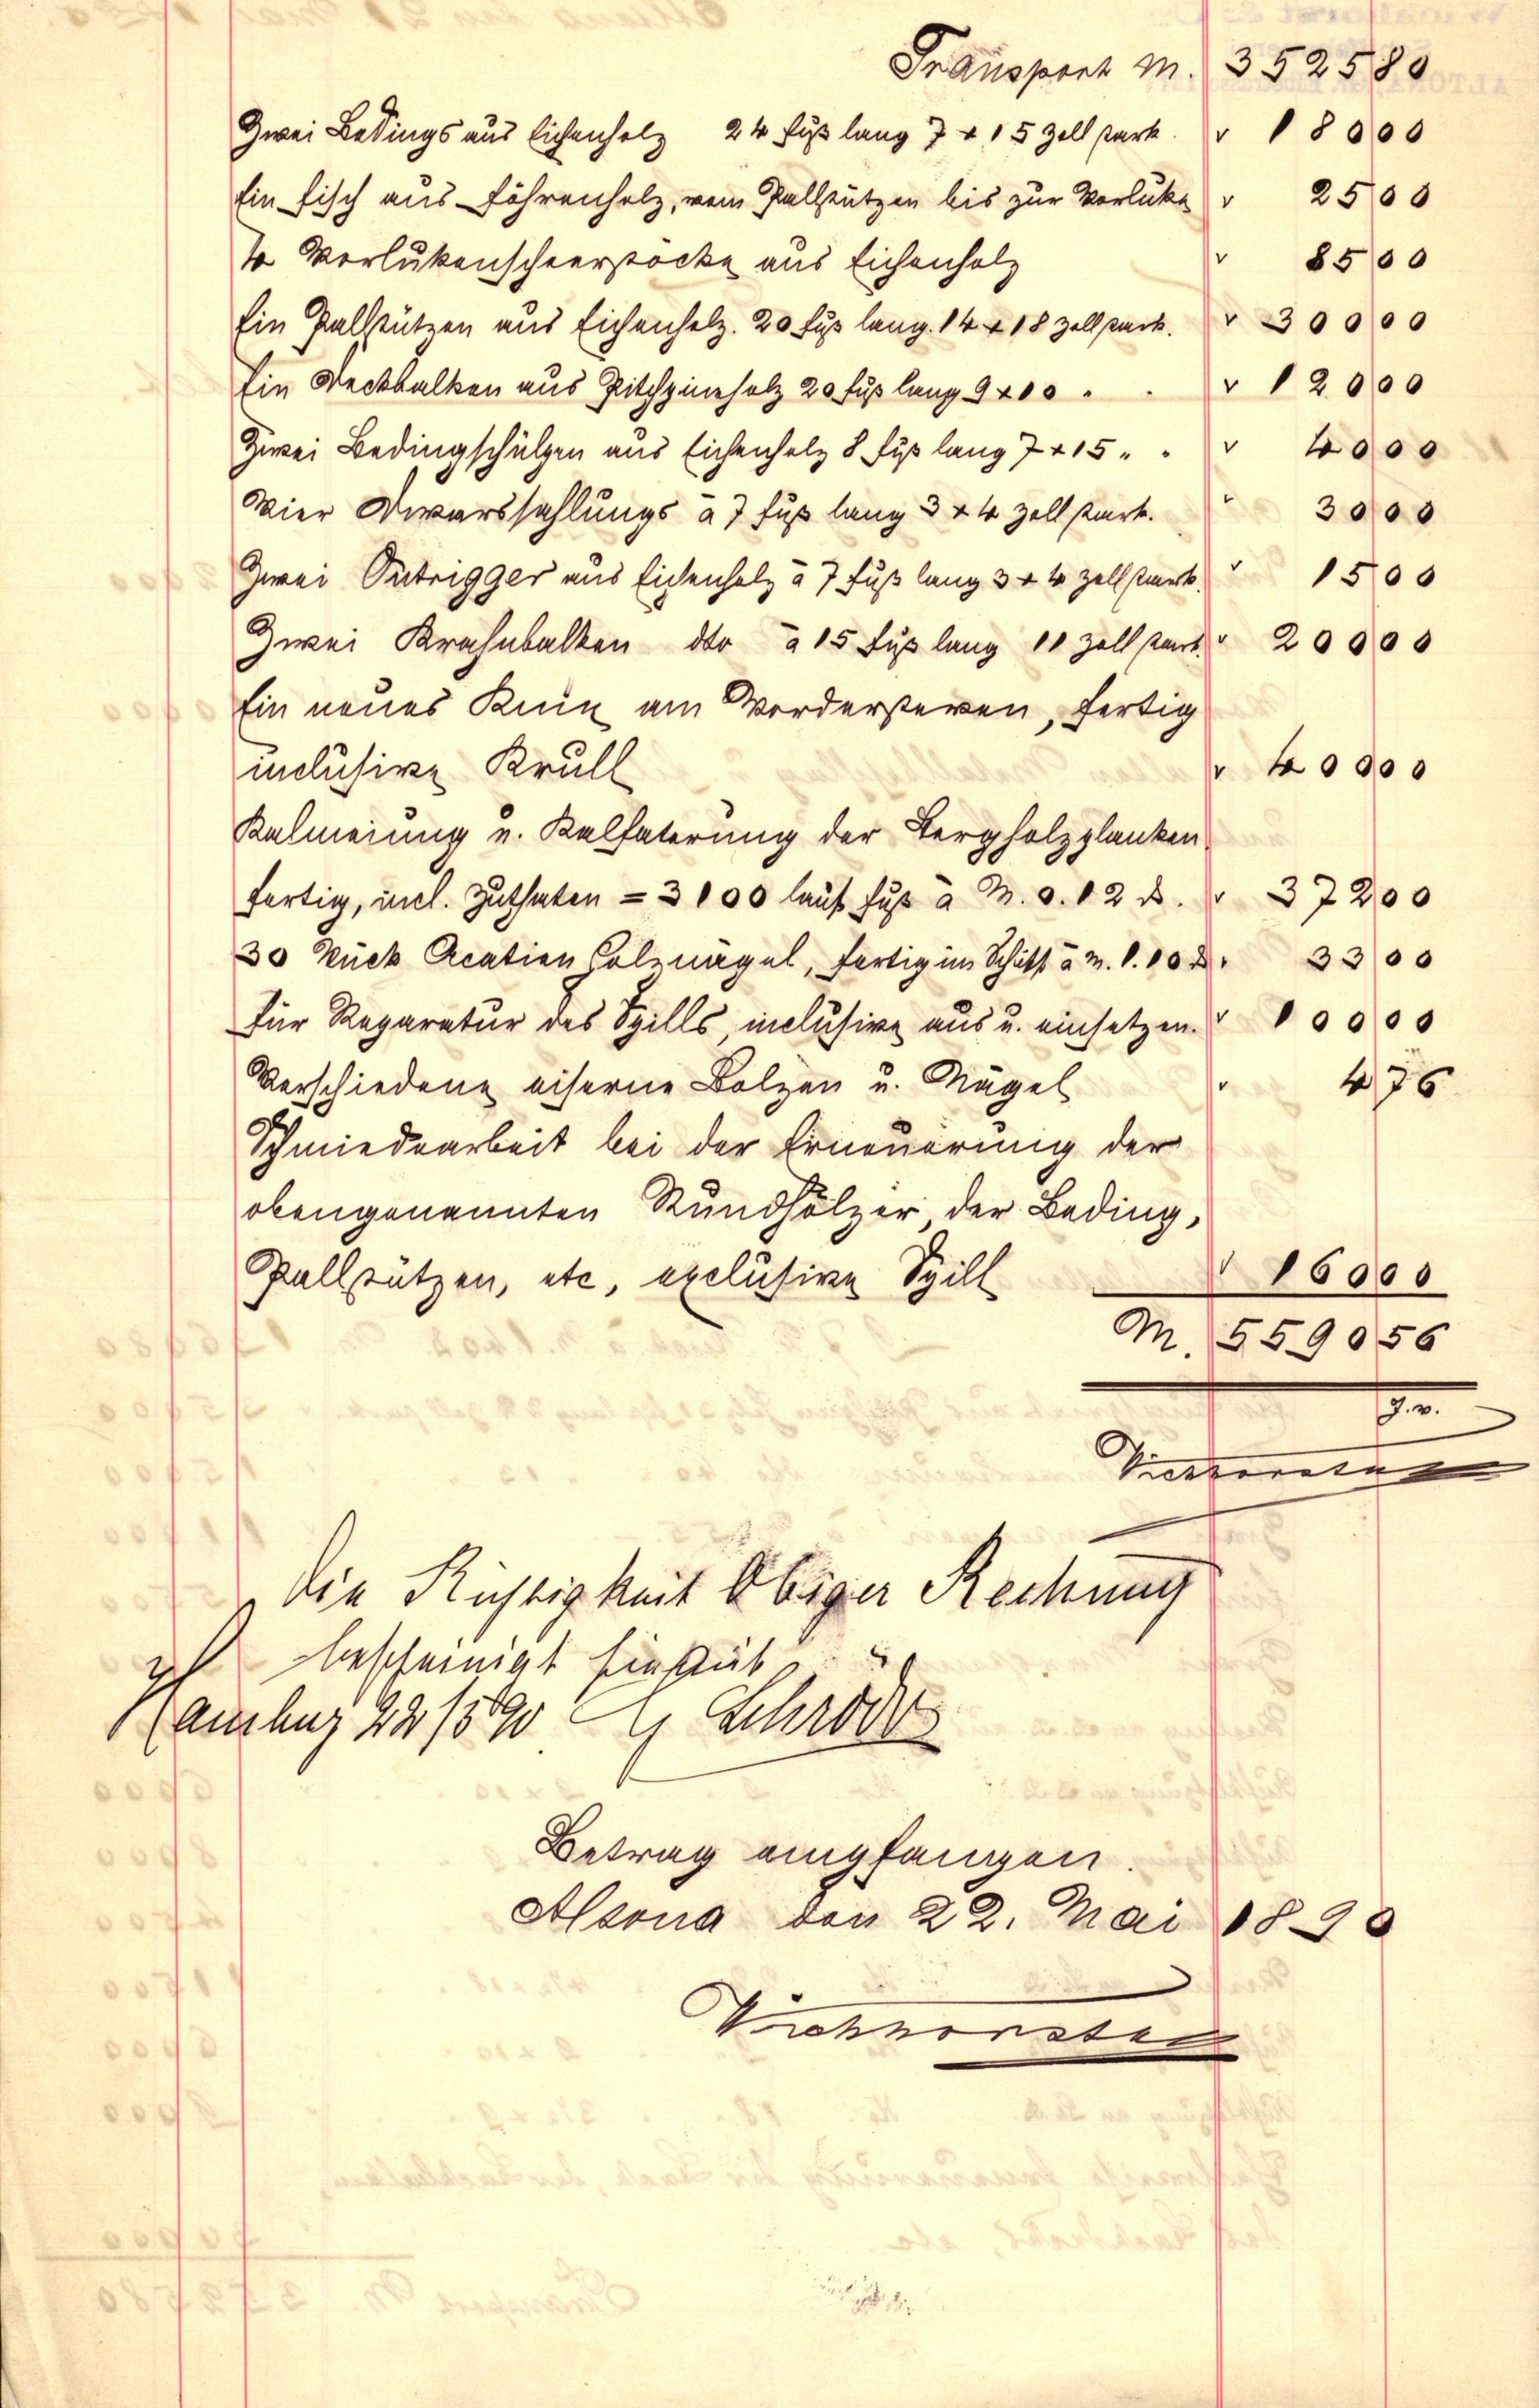 Transport M. 3525 80
Zwei Bedings aus Eichenholz 24 Fuß lang 7 x 15 Zoll stark. " 180 00
Ein Fisch aus Föhrenholz, vom Pallstützen bis zur Vorluke " 25 00
4 Vorlukenscheerstöcke aus Eichenholz " 85 00
Ein Pallstützen aus Eichenholz. 20 Fuß lang. 14 x 18 Zoll stark. " 300 00
Ein Deckbalken aus Pitchpineholz 20 Fuß lang 9 x 10 " " " 120 00
Zwei Bedingschülpen aus Eichenholz 8 Fuß lang 7 x 15 " " " 40 00
Vier Dwarssahlungs a 7 Fuß lang 3 x 4 Zoll stark. " 30 00
Zwei Outrigger aus Eichenholz a 7 Fuß lang 3 x 4 Zoll stark. " 15 00
Zwei Krahnbalken dto a 15 Fuß lang 11 Zoll stark. " 200 00
Ein neues Knie am Vordersteven, fertig
inclusive Krull " 400 00
Kalmeiung u. Kalfaterung der Bergholzplanken
fertig, incl. Zuthaten = 3100 lauf Fuß a M. 0.12 d. " 372 00
30 Stück Acatien Holznägel, fertig im Schiff a M. 1.10 d. " 33 00
Für Reparatur des Spills, inclusive aus u. einsetzen. " 100 00
Verschiedene eiserne Bolzen u. Nägel " 4 76
Schmiedearbeit bei der Erneuerung der
obengenannten Rundhölzer, der Beding,
Pallstützen, etc, exclusive Spill " 160 00
M. 5590 56
Die Richtigkeit Obiger Rechnung
bescheinigt
Hamburg 22/5 90 Schröder
Betrag empfangen.
Altona den 22. Mai 1890